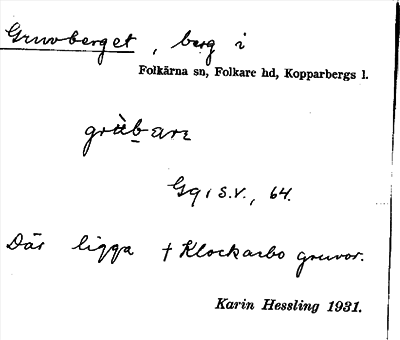 Gruvberget, berg i
Folkärna sn, Folkare hd, Kopparbergs l.
Gg, s.v., 64.
Där ligga † Klockarbo gruvor.
Karin Hessling 1931.